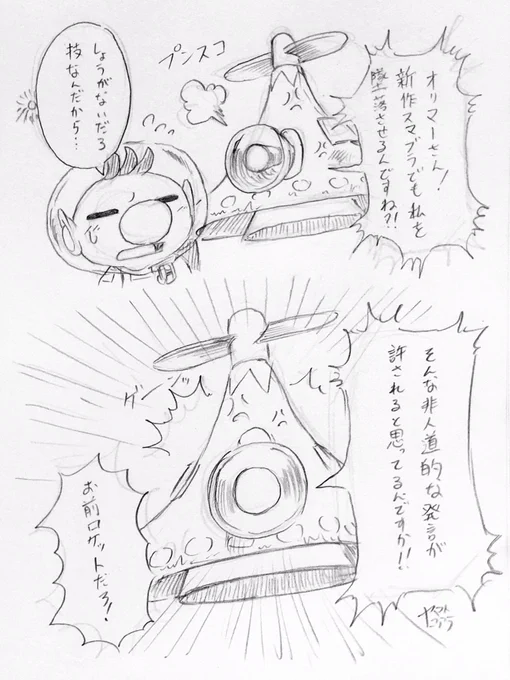 オリマーさん！
新作スマブラでも私を
墜落させるんですね?!
プンスコ
しょうがないだろ
技なんだから…
そんな非人道的な発言が
許されると思ってるんですか!!
お前ロケットだろ！